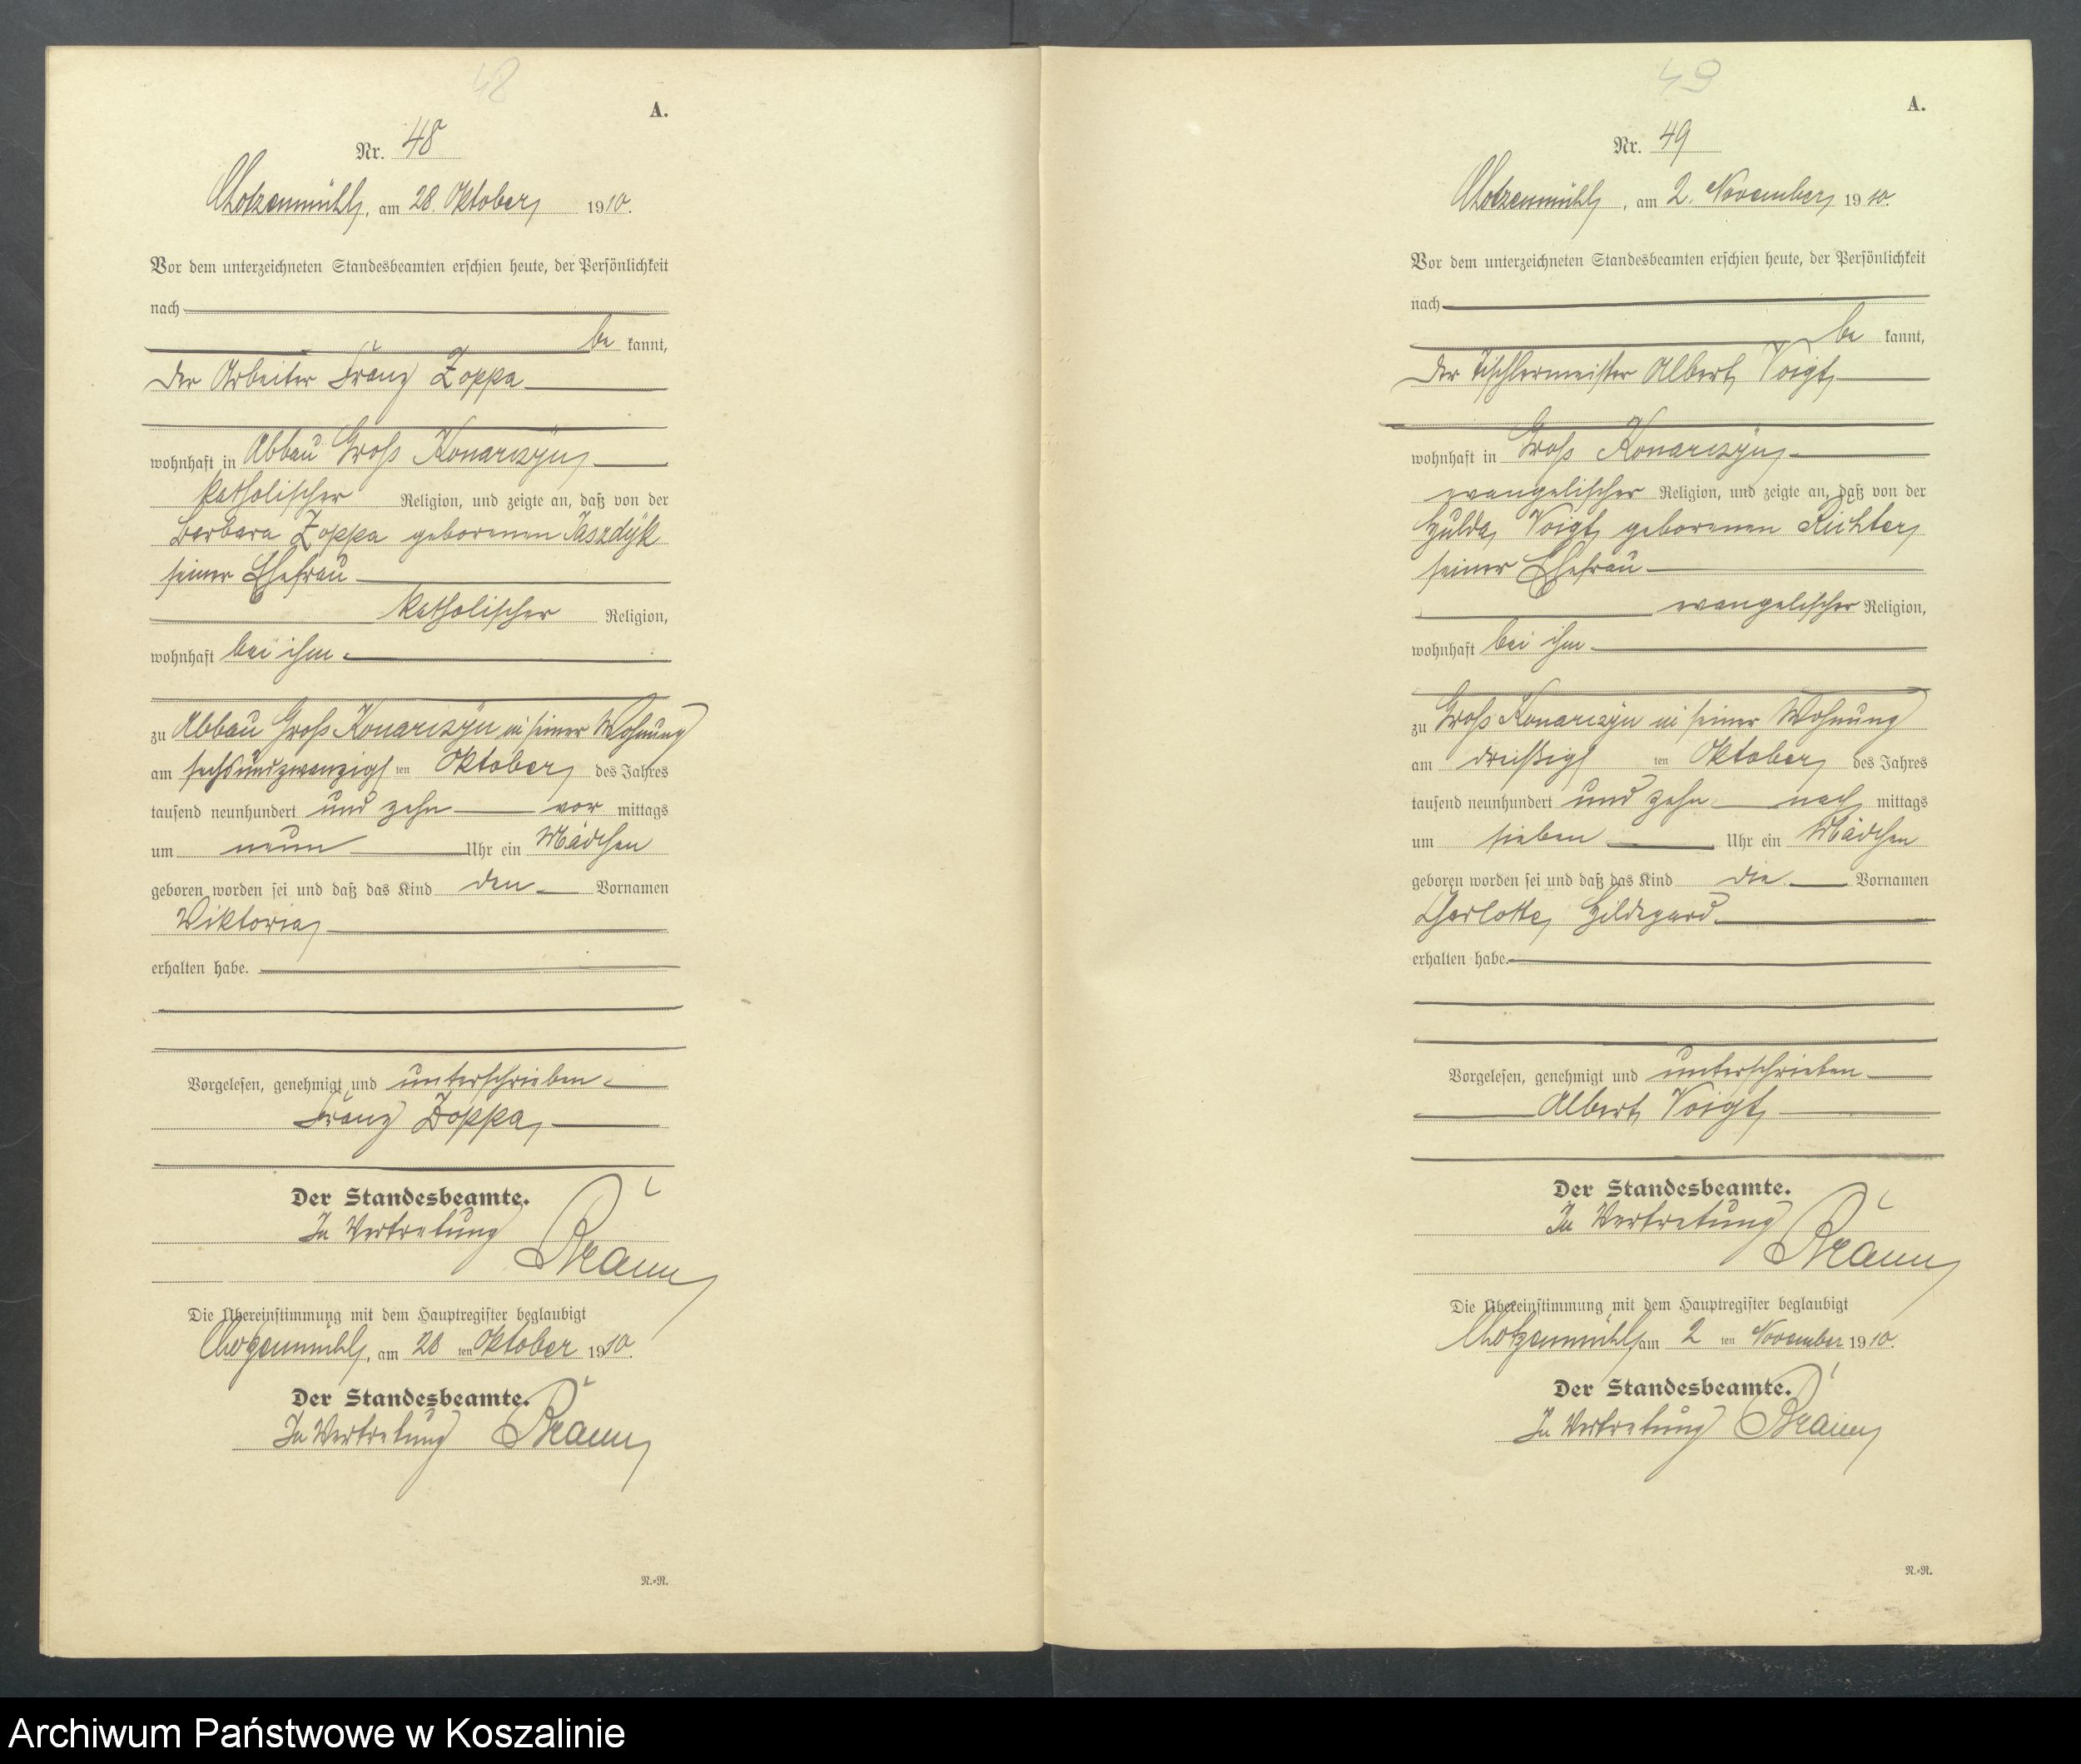 48
A.
Nr. 48
Chotzenmühl, am 28. Oktober 1910.
Vor dem unterzeichneten Standesbeamten erschien heute, der Persönlichkeit
nach
be kannt,
der Arbeiter Franz Zoppa
wohnhaft in Abbau Groß Konarczyn
katholischer Religion, und zeigte an, daß von der
Barbara Zoppa geborenen Jaszdyk
seiner Ehefrau
katholischer Religion,
wohnhaft bei ihm
zu Abbau Groß Konarczyn in seiner Wohnung
am sechsundzwanzigsten Oktober des Jahres
tausend neunhundert und zehn vor mittags
um neun Uhr ein Mädchen
geboren worden sei und daß das Kind den Vornamen
Wiktoria
erhalten habe.
Vorgelesen, genehmigt und unterschrieben
Franz Zoppa
Der Standesbeamte.
In Vertretung
Braun
Die Übereinstimmung mit dem Hauptregister beglaubigt
Chotzenmühl, am 28 ten Oktober 1910.
Der Standesbeamte.
In Vertretung Braun
N.=N.
49
A.
Nr. 49
Chotzenmühl, am 2. November 1910.
Vor dem unterzeichneten Standesbeamten erschien heute, der Persönlichkeit
nach
be kannt,
der Tischlermeister Albert Voigt
wohnhaft in Groß Konarczyn
evangelischer Religion, und zeigte an, daß von der
Hulda Voigt geborenen Richter
seiner Ehefrau
evangelischer Religion,
wohnhaft bei ihm
zu Groß Konarczyn in seiner Wohnung
am dreißigsten Oktober des Jahres
tausend neunhundert und zehn nach mittags
um sieben Uhr ein Mädchen
geboren worden sei und daß das Kind die Vornamen
Charlotte Hildegard
erhalten habe.
Vorgelesen, genehmigt und unterschrieben
Albert Voigt
Der Standesbeamte.
In Vertretung
Braun
Die Übereinstimmung mit dem Hauptregister beglaubigt
Chotzenmühl, am 2 ten November 1910.
Der Standesbeamte.
In Vertretung Braun
N.=N.
Archiwum Państwowe w Koszalinie